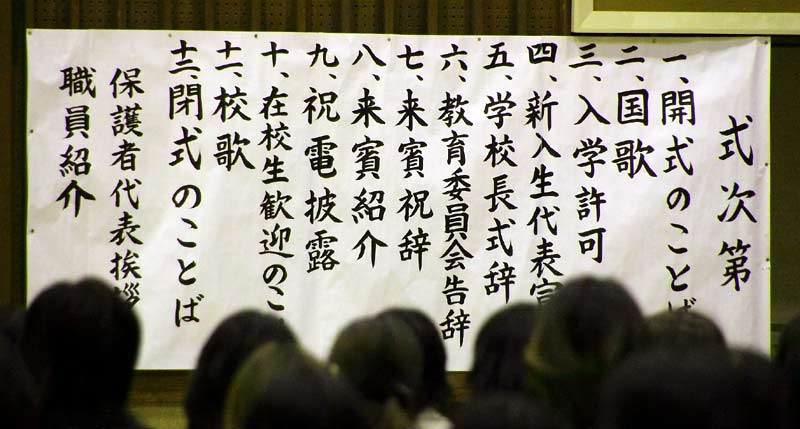 式次第
一、開式のことば
二、国歌
三、入学許可
四、新入生代表宣
五、学校長式辞
六、教育委員会告辞
七、来賓祝辞
八、来賓紹介
九、祝電披露
十、在校生歓迎のこ
十一、校歌
十二、閉式のことば
保護者代表挨拶
職員紹介